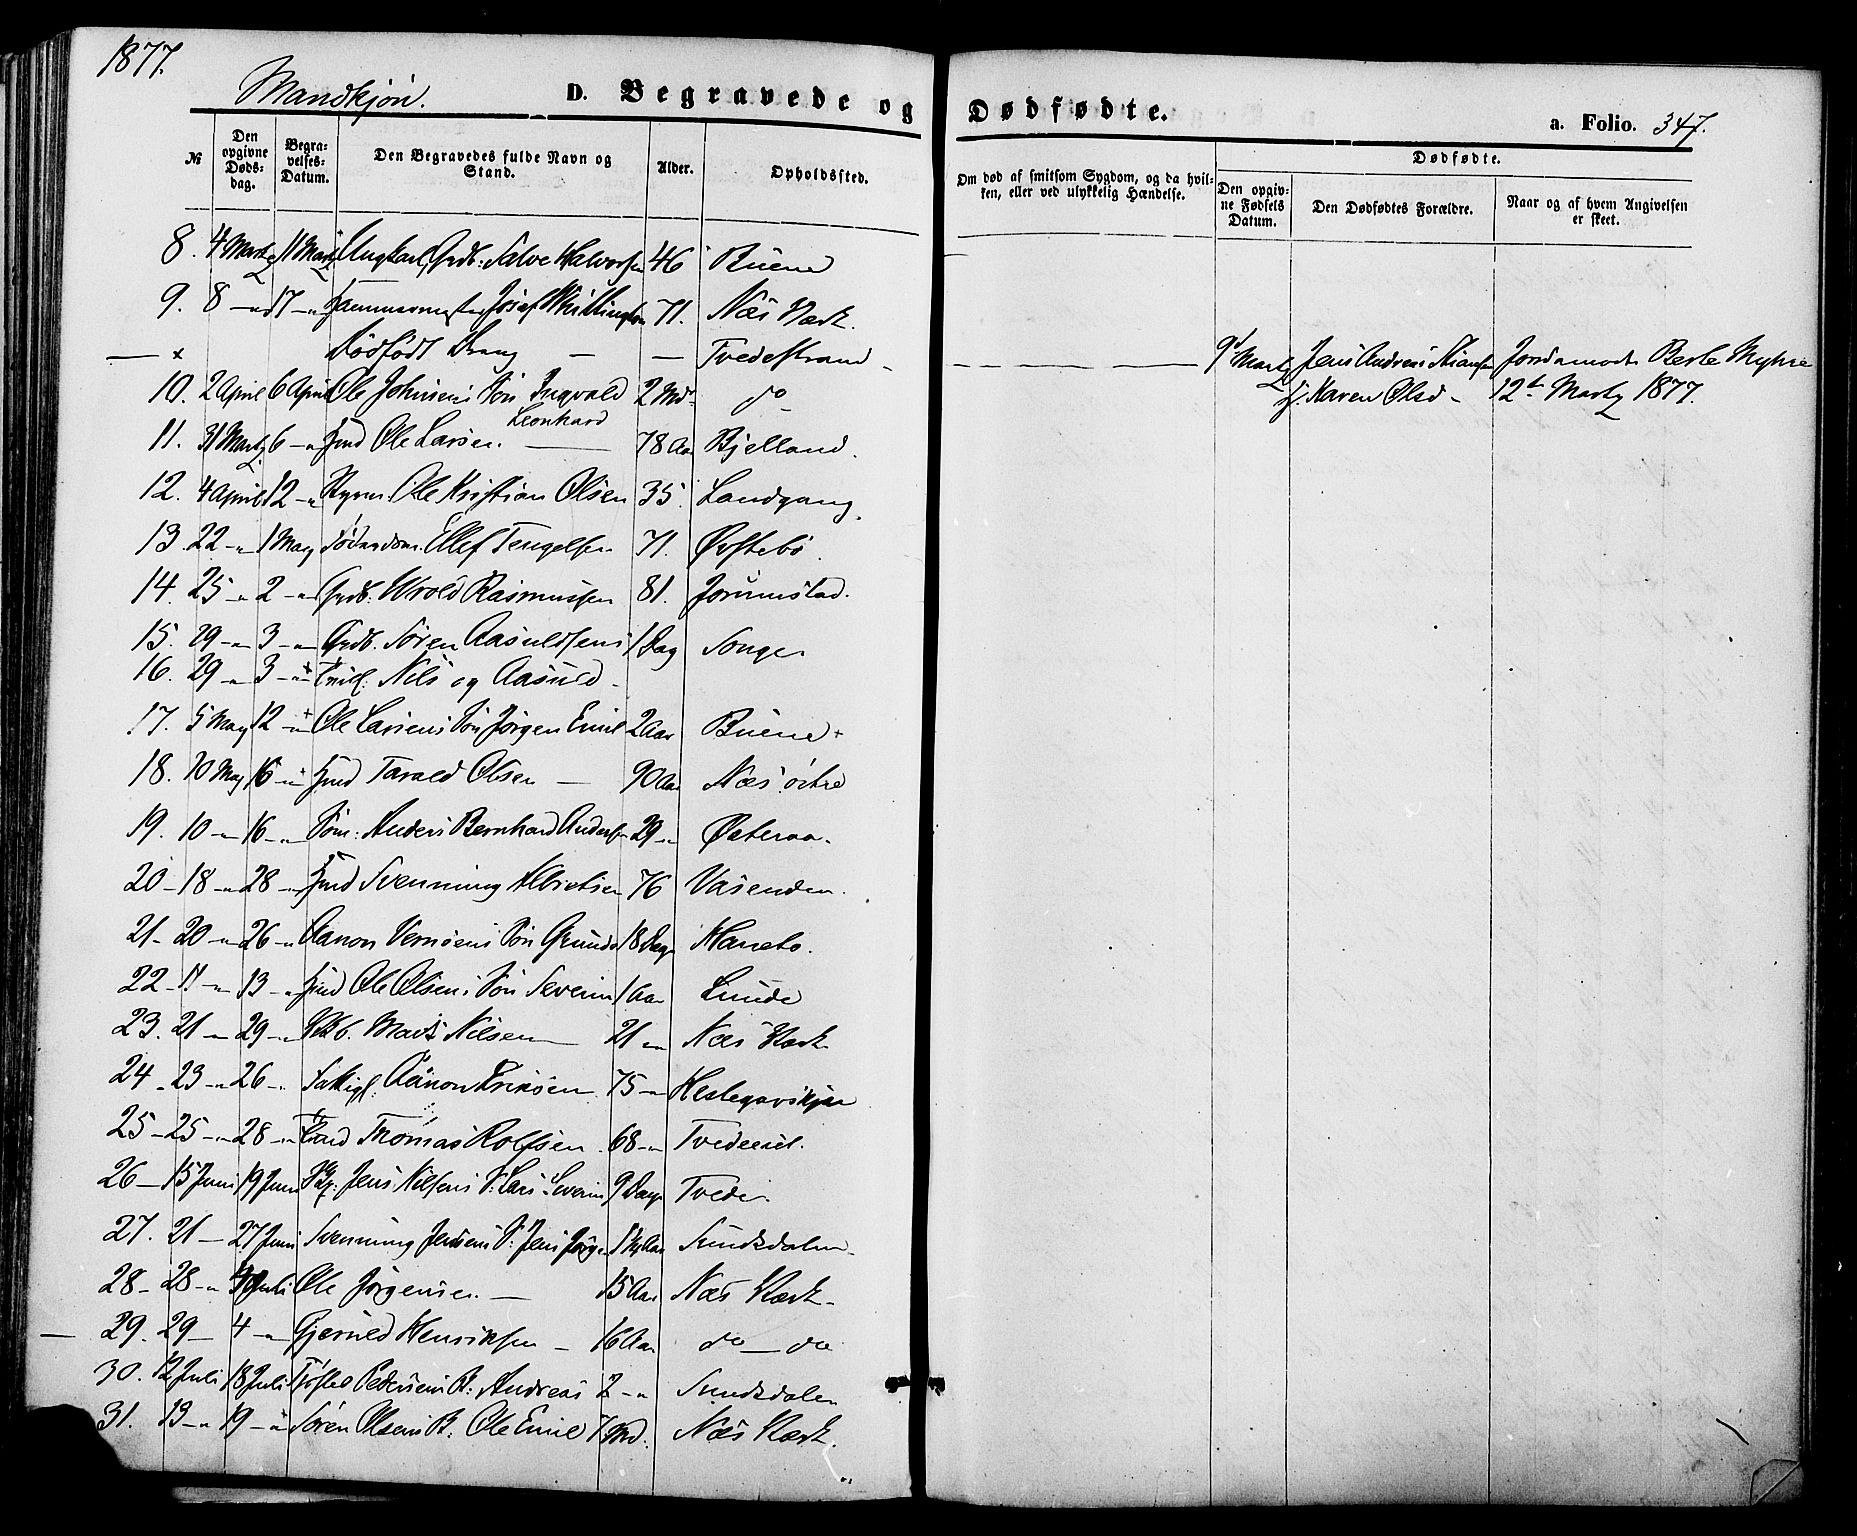 1877.
Mandkjøn.
D. Begravede og Dødfødte.
a. Folio. 347.
№
Den opgivne Døds-dag.
Begra-velses-Datum.
Den Begravedes fulde Navn og Stand.
Alder.
Opholdssted.
Om død af smitsom Sygdom, og da hvil-ken, eller ved ulykkelig Hændelse.
Dødfødte.
Den opgiv-ne Fødsels Datum.
Den Dødfødtes Forældre.
Naar og af hvem Angivelsen er skeet.
8. 4 Marts 11 Marts Ungkarl, Grdb: Salve Halvorsen 46 Buene
9. 8 — 17 — Hammermester Josef Whittington 71. Næs Værk.
— x Dødfødt Dreng — — Tvedestrand — 9 Marts Jens Andreas Jordemoder Berle Myhre
10. 2 April 6 April Ole Johnsens Søn Ingvald Leonhard 2 Md do Karen Olsd — 12te Marts 1877.
11. 31 Marts 6 — Hmd Ole Larsen. — 78 Aar Bjelland.
12. 4 April 12 — Styrm. Ole Kristian Olsen 35. Landgang.
13. 22 — 1 May Ellef Tengelsen 71. Østebö.
14. 25 — 2 — Grdb. Wrold Rasmussen 81. Jorunstad.
15. 29 — 3 — Grdb. Sören Aasuldsens 1 Dag Songe
16. 29 — 3 — Tvill: Nils og Aasuld —
17. 5 May 12 — Ole Larsens Søn Jörgen Emil 2 Aar Buene +
18. 10 May 16 — Hmd Tarald Olsen — 90 Aar Næs östre
19. 10 — 16 — Söm: Anders Bernhard Andersen 29 — Österaa.
20 — 18 — 28 — Hmd Svenning Albretsen 76 Vasenden.
21 — 20 — 26 — Aanon Vernsens Søn Gunds 18 Dage Maneto.
22 — 11 — 13 — Hmd Ole Olsens Søn Severin 1 Aar Lunde
23. 21 — 29 — Mads Nilsen — 21 — Næs Værk
24 — 23 — 26 — Fattigl: Aanon Eriksen 75 — Heslegavskjær
25 — 25 — 28 — Thomas Rolfsen 68 — Tvedeeiet.
26 — 15 Juni 19 Juni Jens Nilsens S: Lars Severin 9 Dage Tvede.
27. 21 — 27 Juni Svenning Jensens S: Jens Jörgen Sundsdalen —
28 — 28 — 4 Juli Ole Jörgensen — 15 Aar Næs Værk —
29. 29 — 4 — Gjeruld Henriksen — 16 Aar do — do
30. 12 Juli 18 Juli Pedersens B: Andreas 2 — Sundsdalen
31. 13 — 19 — Sören Olsens B: Ole Emil 7 Md. Næs Værk.